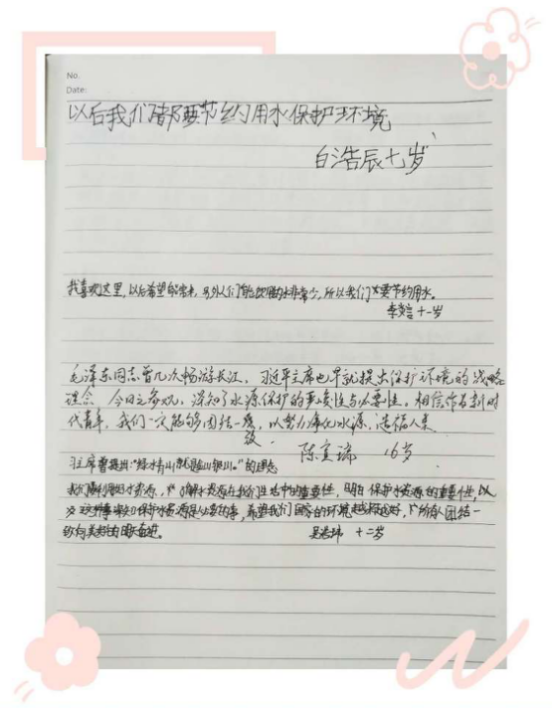 No.
Date:
以后我们都要节约用水保护环境
白浩辰十岁
我喜欢这里，以后希望能常来，另外人们能饮用的水非常少，所以我们要节约用水。
十一岁
毛泽东同志曾几次畅游长江，习近平主席也早就提出保护环境的战略
理念 今日之参观，深知了水源保护的重要性与必要性，相信作为新时
代青年，我们一定能够团结一致，以努力净化水源，造福人类
陈宣瑞 16岁
习主席曾提出："绿水青山就是金山银山。"的理念
我们水资源，了解水资源在我们生活中的重要性，明白保护水资源的重要性，以
及保护水资源是必要的事，希望我们国家的环境越来越好，团结一
致向美好的明天奋进。
十二岁